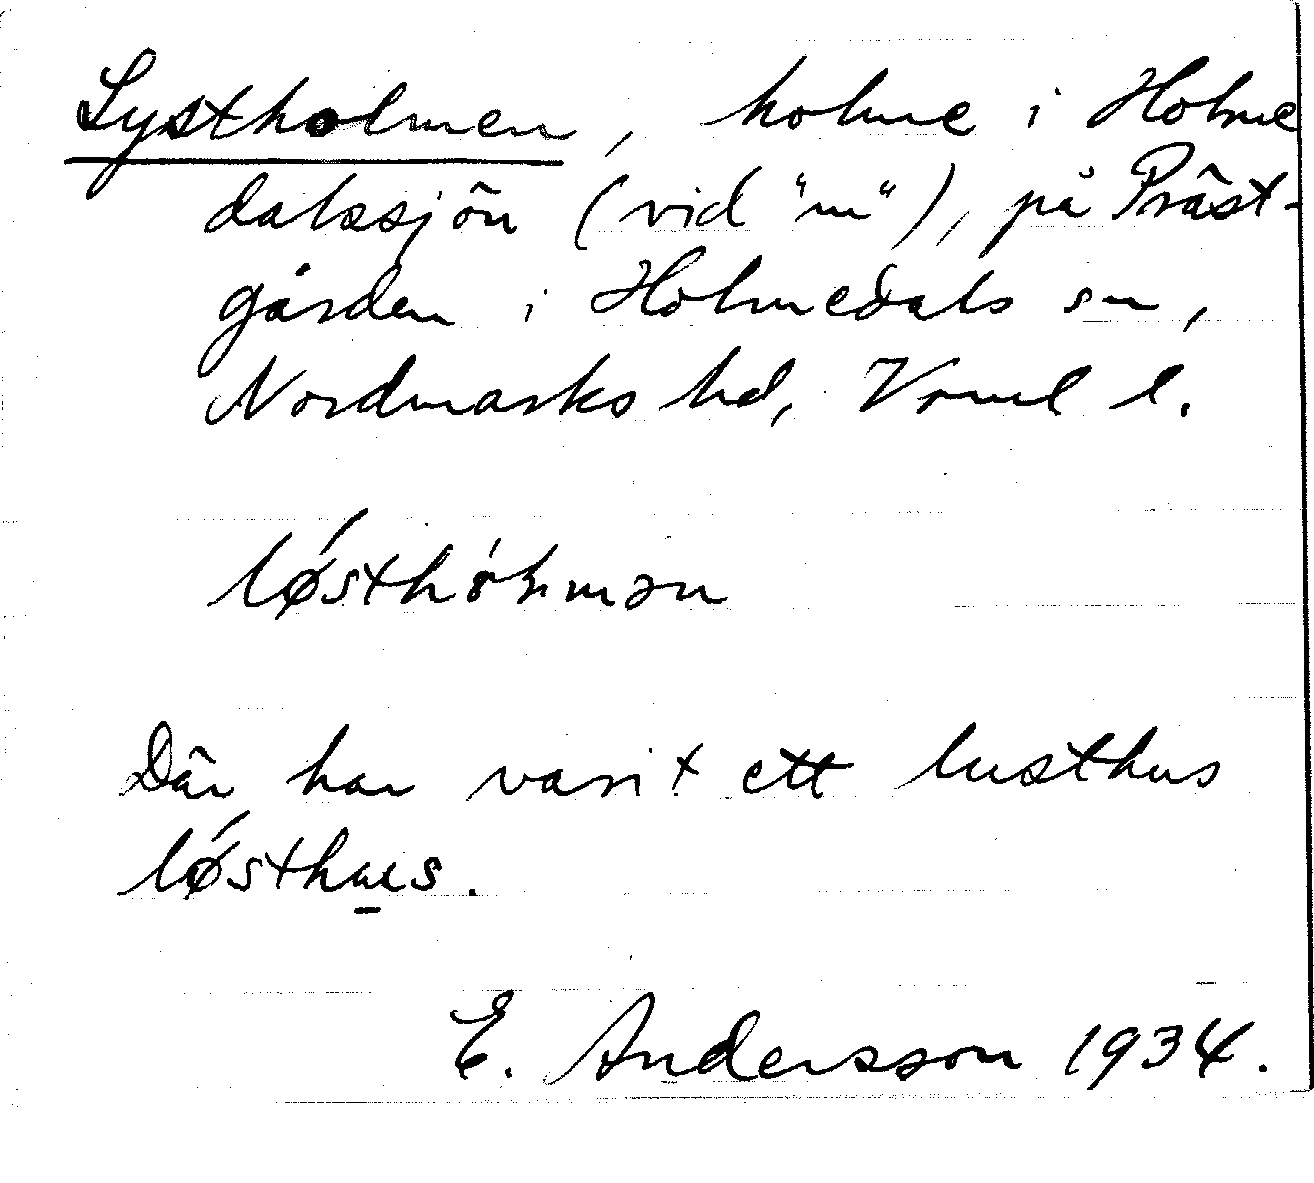 Lystholmen, holme i Holme
dalssjön (vid "m"), på Präst-
gården i Holmedals sn,
Nordmarks hd, Vrml l.
Där har varit ett lusthus
E. Andersson 1934.